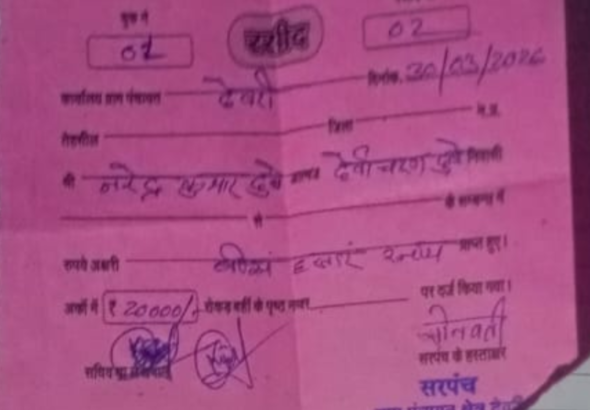 बुक नं
01 रसीद 02
कार्यालय ग्राम पंचायत देवरी दिनांक 30/03/2026
तहसील जिला म.प्र.
श्री नरेन्द्र कुमार दुबे देवीचरण दुबे निवासी
से के सम्बन्ध में
रुपये अक्षरी हजार प्राप्त हुए।
अंकों में ₹ 20000/- रोकड़ बही के पृष्ठ नम्बर पर दर्ज किया गया।
सरपंच के हस्ताक्षर
सरपंच